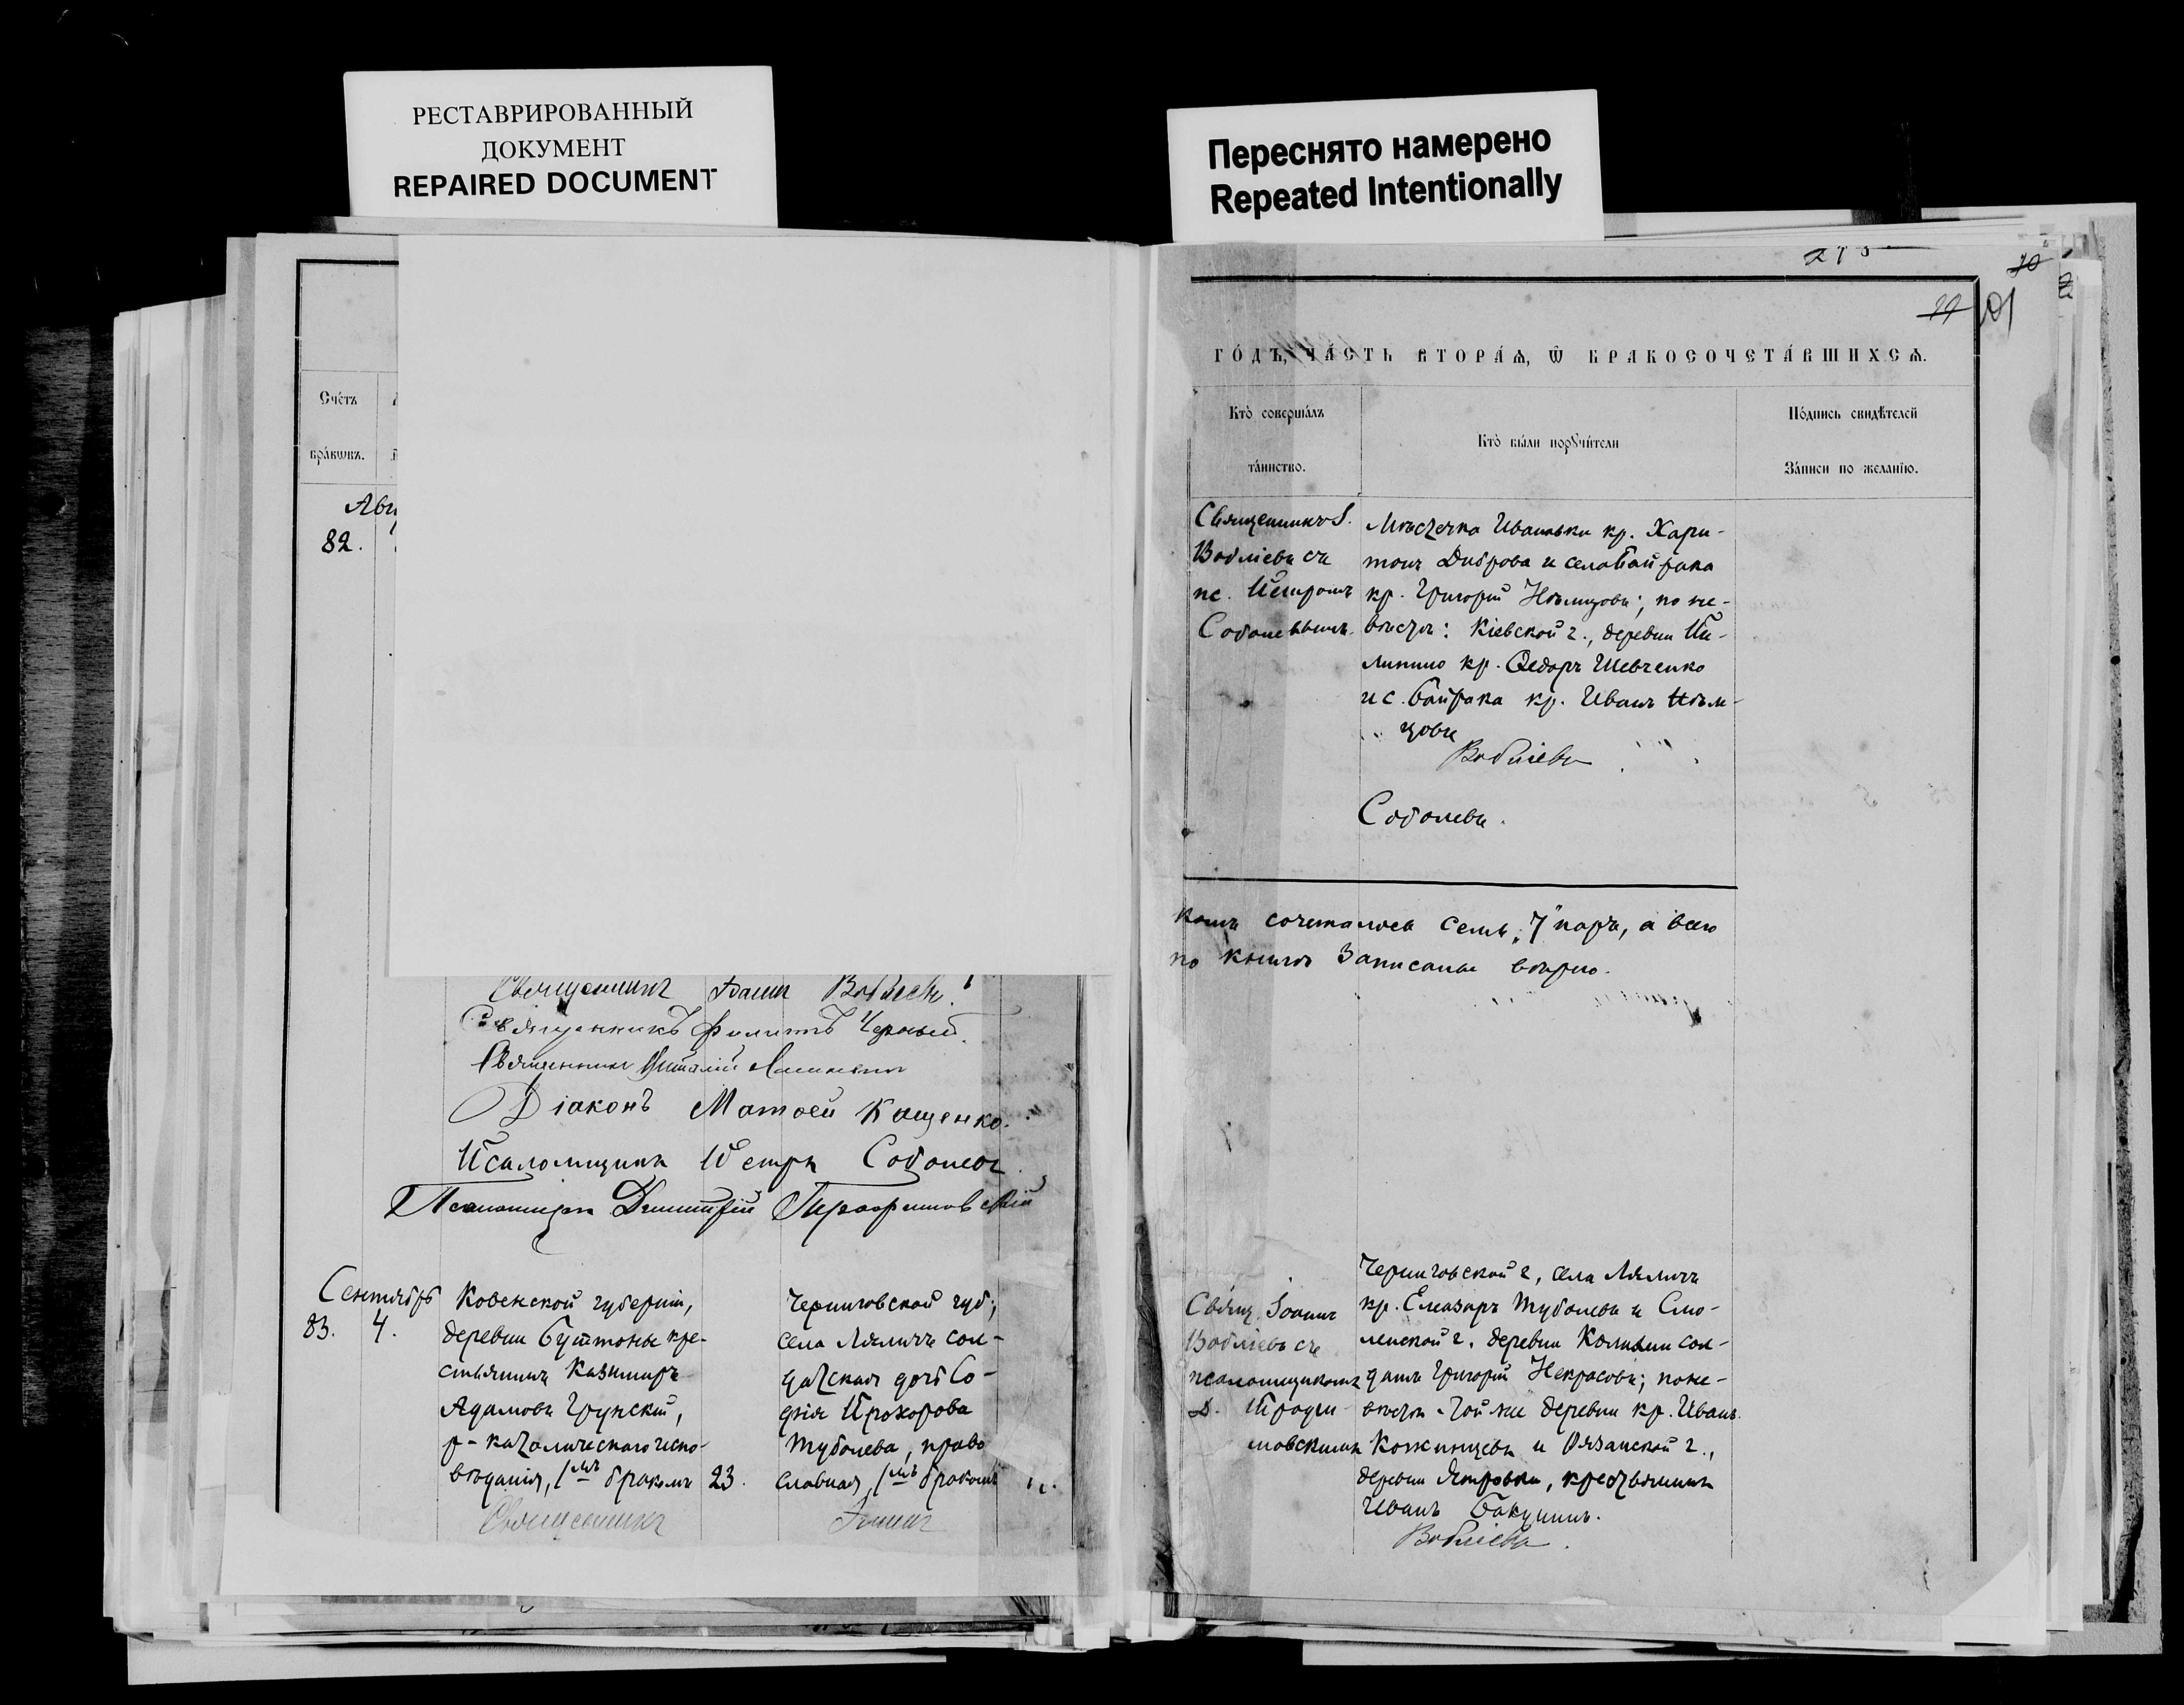 РЕСТАВРИРОВАННЫЙ
ДОКУМЕНТ
REPAIRED DOCUMENT
Переснято намерено
Repeated Intentionally
Сче́тъ
бра́кѡвъ.
Авг
82.
Священникъ Іоаннъ Вобліевъ
Священникъ Филиппъ
Священникъ
Діаконъ Матѳей Кащенко.
Псаломщикъ Петръ Соболевъ
Псаломщикъ Димитрій
Сентябрь
83. 4.
Ковенской губерніи,
деревни кре-
стьянинъ Казимиръ
Адамовъ Грунскій,
р-католическаго испо-
вѣданія, 1мъ бракомъ
23.
Черниговской губ.,
села Ляличъ сол-
датская дочь Со-
фія Прохорова
Туболева, право
славная, 1мъ бракомъ
Священникъ Іоаннъ
ГО́ДЪ, ЧА́СТЬ ВТОРА́Ѧ, Ѿ БРАКОСОЧЕТА́ВШИХСѦ.
Кто̀ соверша́лъ
та́инство.
Кто̀ бы́ли порꙋчи́тели
По́дпись свидѣ́телей
За́писи по жела́нїю.
Священникъ І.
Вобліевъ съ
пс. Петромъ
Соболевымъ.
Мѣстечка Ивановки кр. Хари-
тонъ Диброва и села Байрака
кр. Григорій Нѣмцовъ; по не-
вѣстѣ: Кіевской г., деревни Пи-
липино кр. Ѳедоръ Шевченко
и с. Байрака кр. Иванъ Нѣм-
цовъ
Вобліевъ
Соболевъ.
сочеталось семь „7" паръ, а всего
по книгѣ записаны вѣрно.
Свящ. Іоаннъ
Вобліевъ съ
псаломщикомъ
Д.
Черниговской г., села Ляличъ
кр. Елеазаръ Туболевъ и Смо-
ленской г. деревни сол-
датъ Григорій Некрасовъ; по не-
вѣстѣ той же деревни кр. Иванъ
и Рязанской г.,
деревни крестьянинъ
Иванъ Бакунинъ.
Вобліевъ.